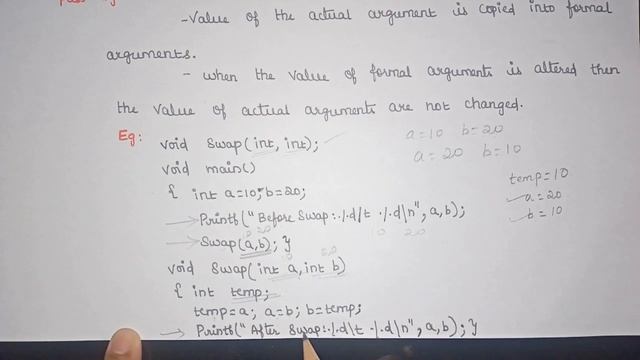 -Value of the actual argument is copied into formal
arguments.
- when the value of formal arguments is altered then
the value of actual arguments are not changed.
Eg: void Swap(int, int);
a=10 b=20
void main()
a=20 b=10
{ int a=10, b=20;
temp=10
a=20
b=10
Printf("Before Swap:%d\t %d\n", a,b);
10 20
Swap(a,b); }
10 20
void Swap(int a, int b)
{ int temp;
temp=a; a=b; b=temp;
Printf("After Swap:%d\t %d\n", a,b); }